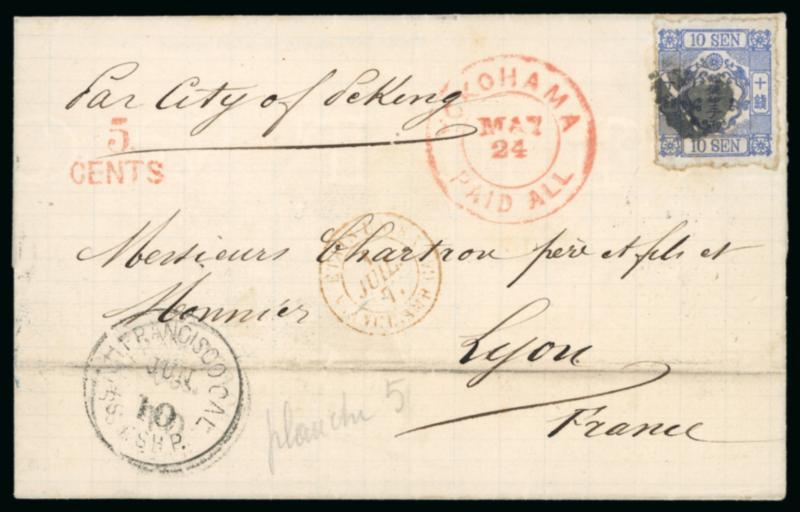 Par City of Peking
5
CENTS
YOKOHAMA
MAY
24
PAID ALL
10 SEN
十錢
10 SEN
Messieurs Chartron père et fils et
Monnier
Lyon
France
JUIL
SAN FRANCISCO CAL
JUN
10
planche 5